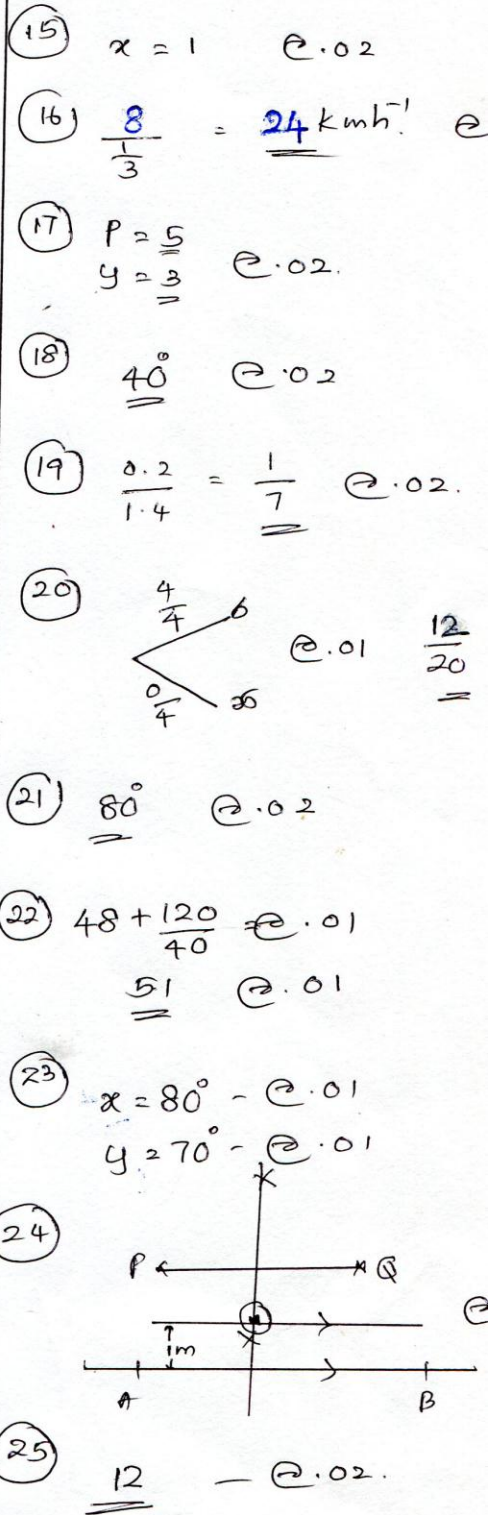 15 x = 1 ල.02
16 8 / 1/3 = 24 kmh⁻¹ ල
17 P = 5
y = 3 ල.02.
18 40° ල.02
19 0.2/1.4 = 1/7 ල.02.
20 4/4
ල.01 12/20
0/4
21 80° ල.02
22 48 + 120/40 = ල.01
51 ල.01
23 x = 80° - ල.01
y = 70° - ල.01
24
P Q
1m
A B
25 12 — ල.02.